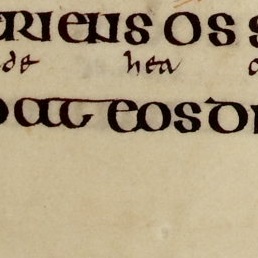 eriens os s
de hea
pat eos di